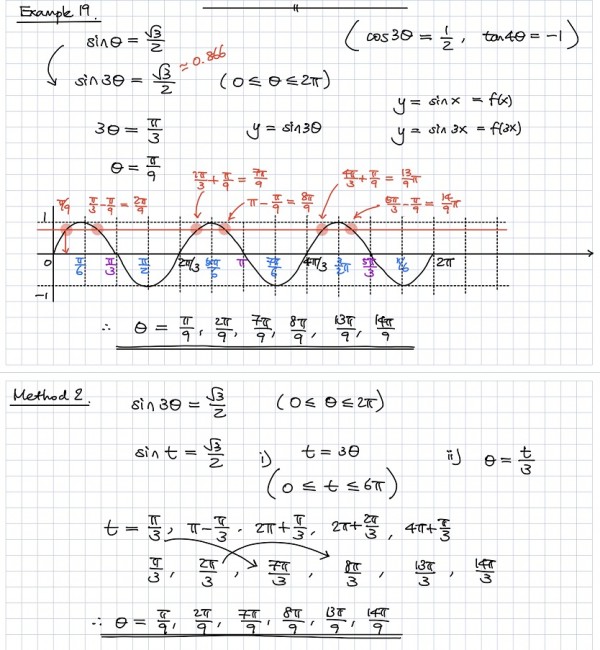 Example 19.
sinθ = √3/2 (cos3θ = 1/2, tan4θ = -1)
sin3θ = √3/2 ≈0.866 (0 ≤ θ ≤ 2π)
y = sinx = f(x)
3θ = π/3 y = sin3θ y = sin3x = f(3x)
θ = π/9
2π/3 + π/9 = 7π/9 4π/3 + π/9 = 13/9 π
π/9 π/3 - π/9 = 2π/9 π - π/9 = 8π/9 5π/3 - π/9 = 14/9 π
1
0 π/6 π/3 π/2 2π/3 π 7π/6 4π/3 3/2π 5π/3 2π
-1
∴ θ = π/9, 2π/9, 7π/9, 8π/9, 13π/9, 14π/9
Method 2.
sin3θ = √3/2 (0 ≤ θ ≤ 2π)
sin t = √3/2 i) t = 3θ ii) θ = t/3
(0 ≤ t ≤ 6π)
t = π/3, π-π/3, 2π+π/3, 2π+2π/3, 4π+π/3
π/3, 2π/3, 7π/3, 8π/3, 13π/3, 14π/3
∴ θ = π/9, 2π/9, 7π/9, 8π/9, 13π/9, 14π/9